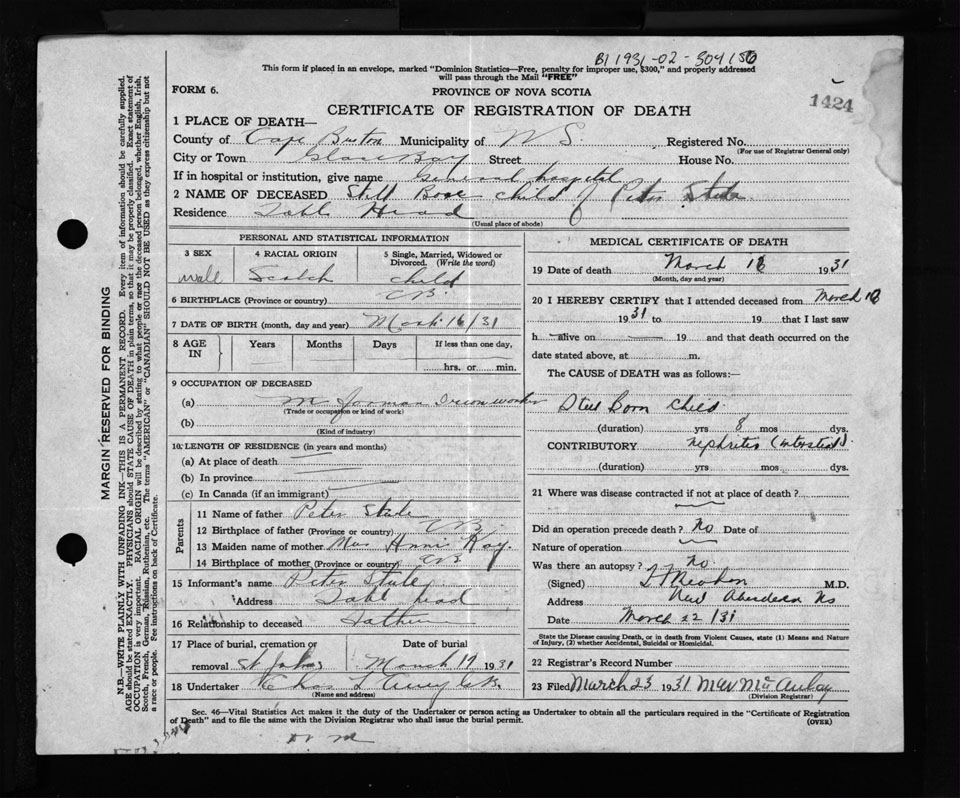 B1 1931-02-304156
This form if placed in an envelope, marked "Dominion Statistics—Free, penalty for improper use, $300," and properly addressed
will pass through the Mail "FREE"
FORM 6.
PROVINCE OF NOVA SCOTIA
1424
CERTIFICATE OF REGISTRATION OF DEATH
1 PLACE OF DEATH—
County of Cape Breton Municipality of N S Registered No.
(For use of Registrar General only)
City or Town Glace Bay Street House No.
If in hospital or institution, give name General hospital
2 NAME OF DECEASED Still Born child of Peter
Residence Table Head
(Usual place of abode)
PERSONAL AND STATISTICAL INFORMATION
3 SEX
4 RACIAL ORIGIN
5 Single, Married, Widowed or Divorced. (Write the word)
Scotch
child
6 BIRTHPLACE (Province or country) CB.
7 DATE OF BIRTH (month, day and year) 16/31
8 AGE IN Years Months Days If less than one day,
hrs. or min.
9 OCCUPATION OF DECEASED
(a)
(Trade or occupation or kind of work)
(b)
(Kind of industry)
10 LENGTH OF RESIDENCE (in years and months)
(a) At place of death
(b) In province
(c) In Canada (if an immigrant)
Parents
11 Name of father Peter
12 Birthplace of father (Province or country) CB.
13 Maiden name of mother Annie Kay.
14 Birthplace of mother (Province or country) CB
15 Informant's name Peter
Address
16 Relationship to deceased Father
17 Place of burial, cremation or
removal St Johns
Date of burial
March 17 1931
18 Undertaker Chas L
(Name and address)
MEDICAL CERTIFICATE OF DEATH
19 Date of death March 16 1931
(Month, day and year)
20 I HEREBY CERTIFY that I attended deceased from March 16
1931 to 19 that I last saw
h alive on 19 and that death occurred on the
date stated above, at m.
The CAUSE of DEATH was as follows:—
Still Born Child
(duration) yrs 8 mos dys.
CONTRIBUTORY Nephritis (interstitial)
(duration) yrs mos dys.
21 Where was disease contracted if not at place of death?
Did an operation precede death? No Date of
Nature of operation
Was there an autopsy? No.
(Signed) M.D.
Address New Aberdeen NS
Date March 22/31
State the Disease causing Death, or in death from Violent Causes, state (1) Means and Nature
of Injury, (2) whether Accidental, Suicidal or Homicidal.
22 Registrar's Record Number
23 Filed March 23 1931
(Division Registrar)
Sec. 46—Vital Statistics Act makes it duty of the Undertaker or person acting as Undertaker to obtain all the particulars required in the "Certificate of Registration
of Death" and to file the same with the Division Registrar who shall issue the burial permit.
(OVER)
MARGIN RESERVED FOR BINDING
N.B.—WRITE PLAINLY WITH UNFADING INK—THIS IS A PERMANENT RECORD. Every item of information should be carefully supplied.
AGE should be stated EXACTLY. PHYSICIANS should STATE CAUSE OF DEATH in plain terms, so that it may be properly classified. Exact statement of
OCCUPATION is very important. RACIAL ORIGIN will be described by stating to what people or race the deceased person belonged, whether English, Irish,
Scotch, French, German, Russian, Ruthenian, etc. The terms "AMERICAN" or "CANADIAN" SHOULD NOT BE USED as they express citizenship but not
a race or people. See instructions on back of Certificate.